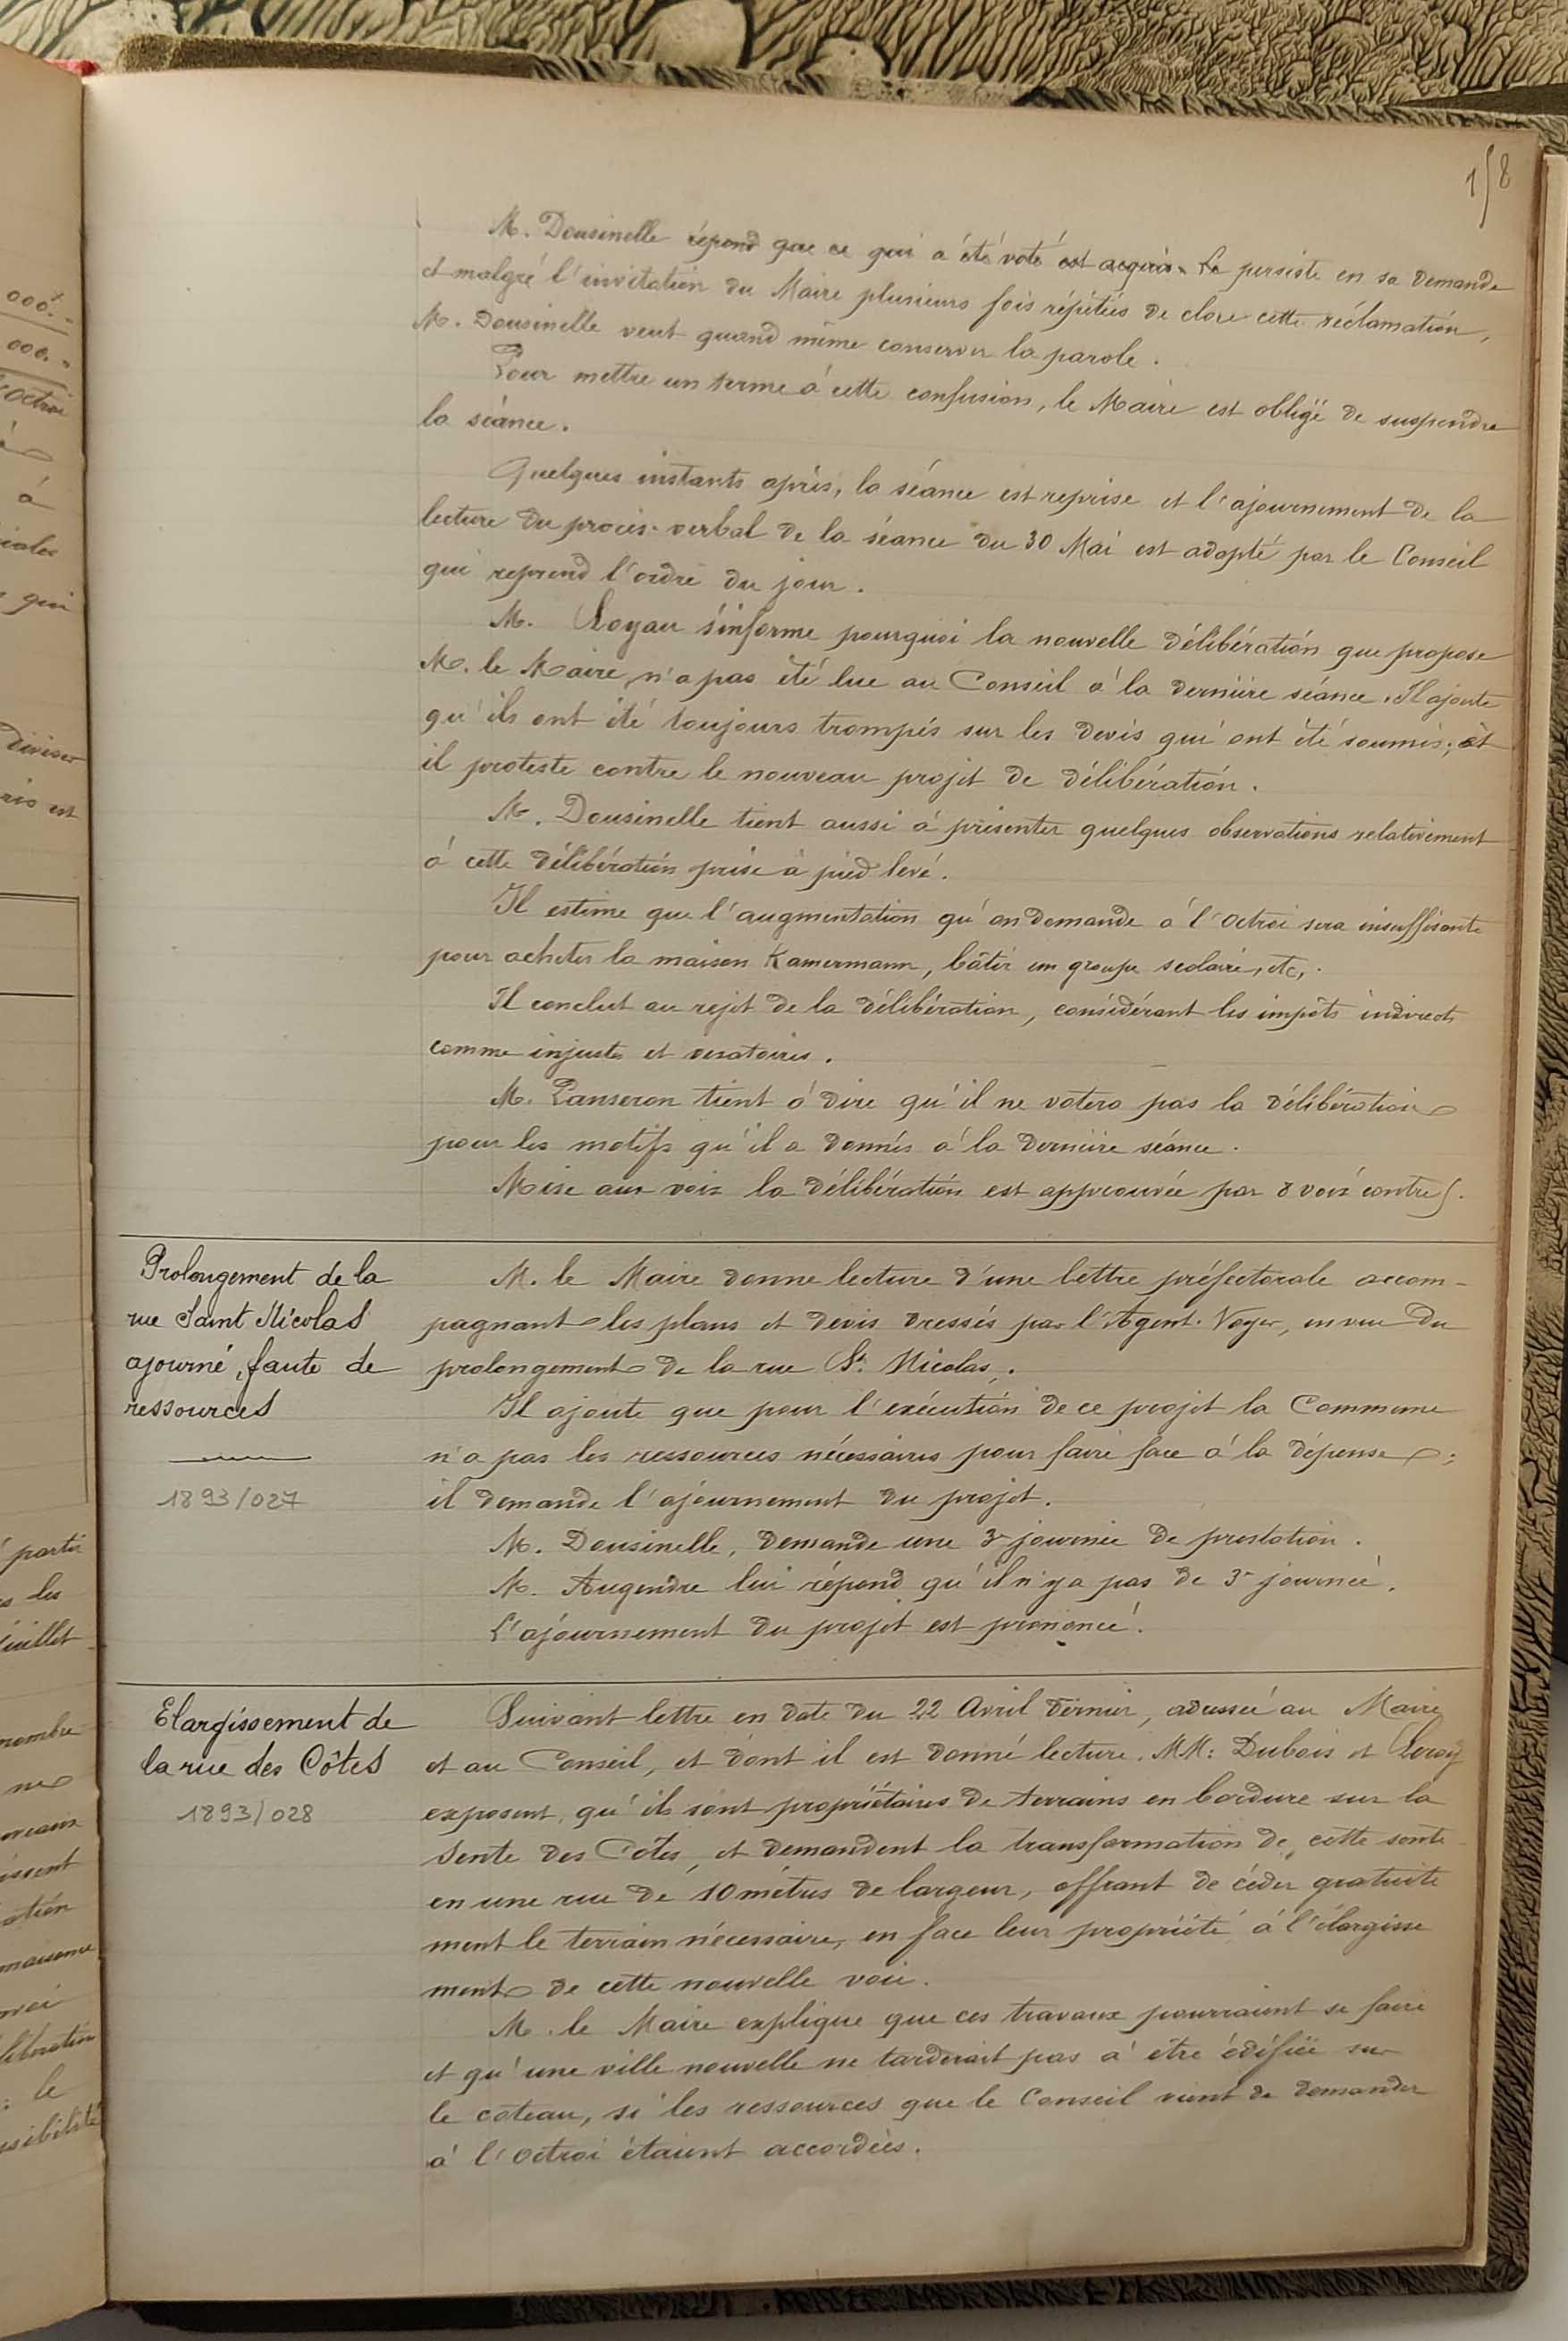 158
M. Dousinelle répond que ce qui a été voté est acquis. Il persiste en sa demande
et malgré l'invitation du Maire plusieurs fois répétées de clore cette réclamation,
M. Dousinelle veut quand même conserver la parole.
Pour mettre un terme à cette confusion, le Maire est obligé de suspendre
la séance.
Quelques instants après, la séance est reprise et l'ajournement de la
lecture du procès-verbal de la séance du 30 Mai est adopté par le Conseil
qui reprend l'ordre du jour.
M. Loyau s'informe pourquoi la nouvelle délibération que propose
M. le Maire n'a pas été lue au Conseil à la dernière séance. Il ajoute
qu'ils ont été toujours trompés sur les devis qui ont été soumis; et
il proteste contre le nouveau projet de délibération.
M. Dousinelle tient aussi à présenter quelques observations relativement
à cette délibération prise à pied levé.
Il estime que l'augmentation qu'on demande à l'octroi sera insuffisante
pour acheter la maison Kamermann, bâtir un groupe scolaire, etc.
Il conclut au rejet de la délibération, considérant les impôts indirects
comme injustes et vexatoires.
M. Panseron tient à dire qu'il ne votera pas la délibération
pour les motifs qu'il a donnés à la dernière séance.
Mise aux voix la délibération est approuvée par 8 voix contre 5.
Prolongement de la
rue Saint Nicolas
ajourné, faute de
ressources
1893/027
M. le Maire donne lecture d'une lettre préfectorale accom-
pagnant les plans et devis dressés par l'Agent-Voyer, en vue du
prolongement de la rue St. Nicolas.
Il ajoute que pour l'exécution de ce projet la Commune
n'a pas les ressources nécessaires pour faire face à la dépense;
il demande l'ajournement du projet.
M. Dousinelle, demande une 3e journée de prestation.
M. Augendre lui répond qu'il n'y a pas de 3e journée.
L'ajournement du projet est prononcé.
Elargissement de
la rue des Côtes
1893/028
Suivant lettre en date du 22 Avril dernier, adressée au Maire
et au Conseil, et dont il est donné lecture, MM: Dubois et Leroy
exposent qu'ils sont propriétaires de terrains en bordure sur la
sente des Côtes, et demandent la transformation de cette sente
en une rue de 10 mètres de largeur, offrant de céder gratuite
ment le terrain nécessaire, en face leur propriété à l'élargisse
ment de cette nouvelle voie.
M. le Maire explique que ces travaux pourraient se faire
et qu'une ville nouvelle ne tarderait pas à être édifiée sur
le coteau, si les ressources que le Conseil vient de demander
à l'octroi étaient accordées.